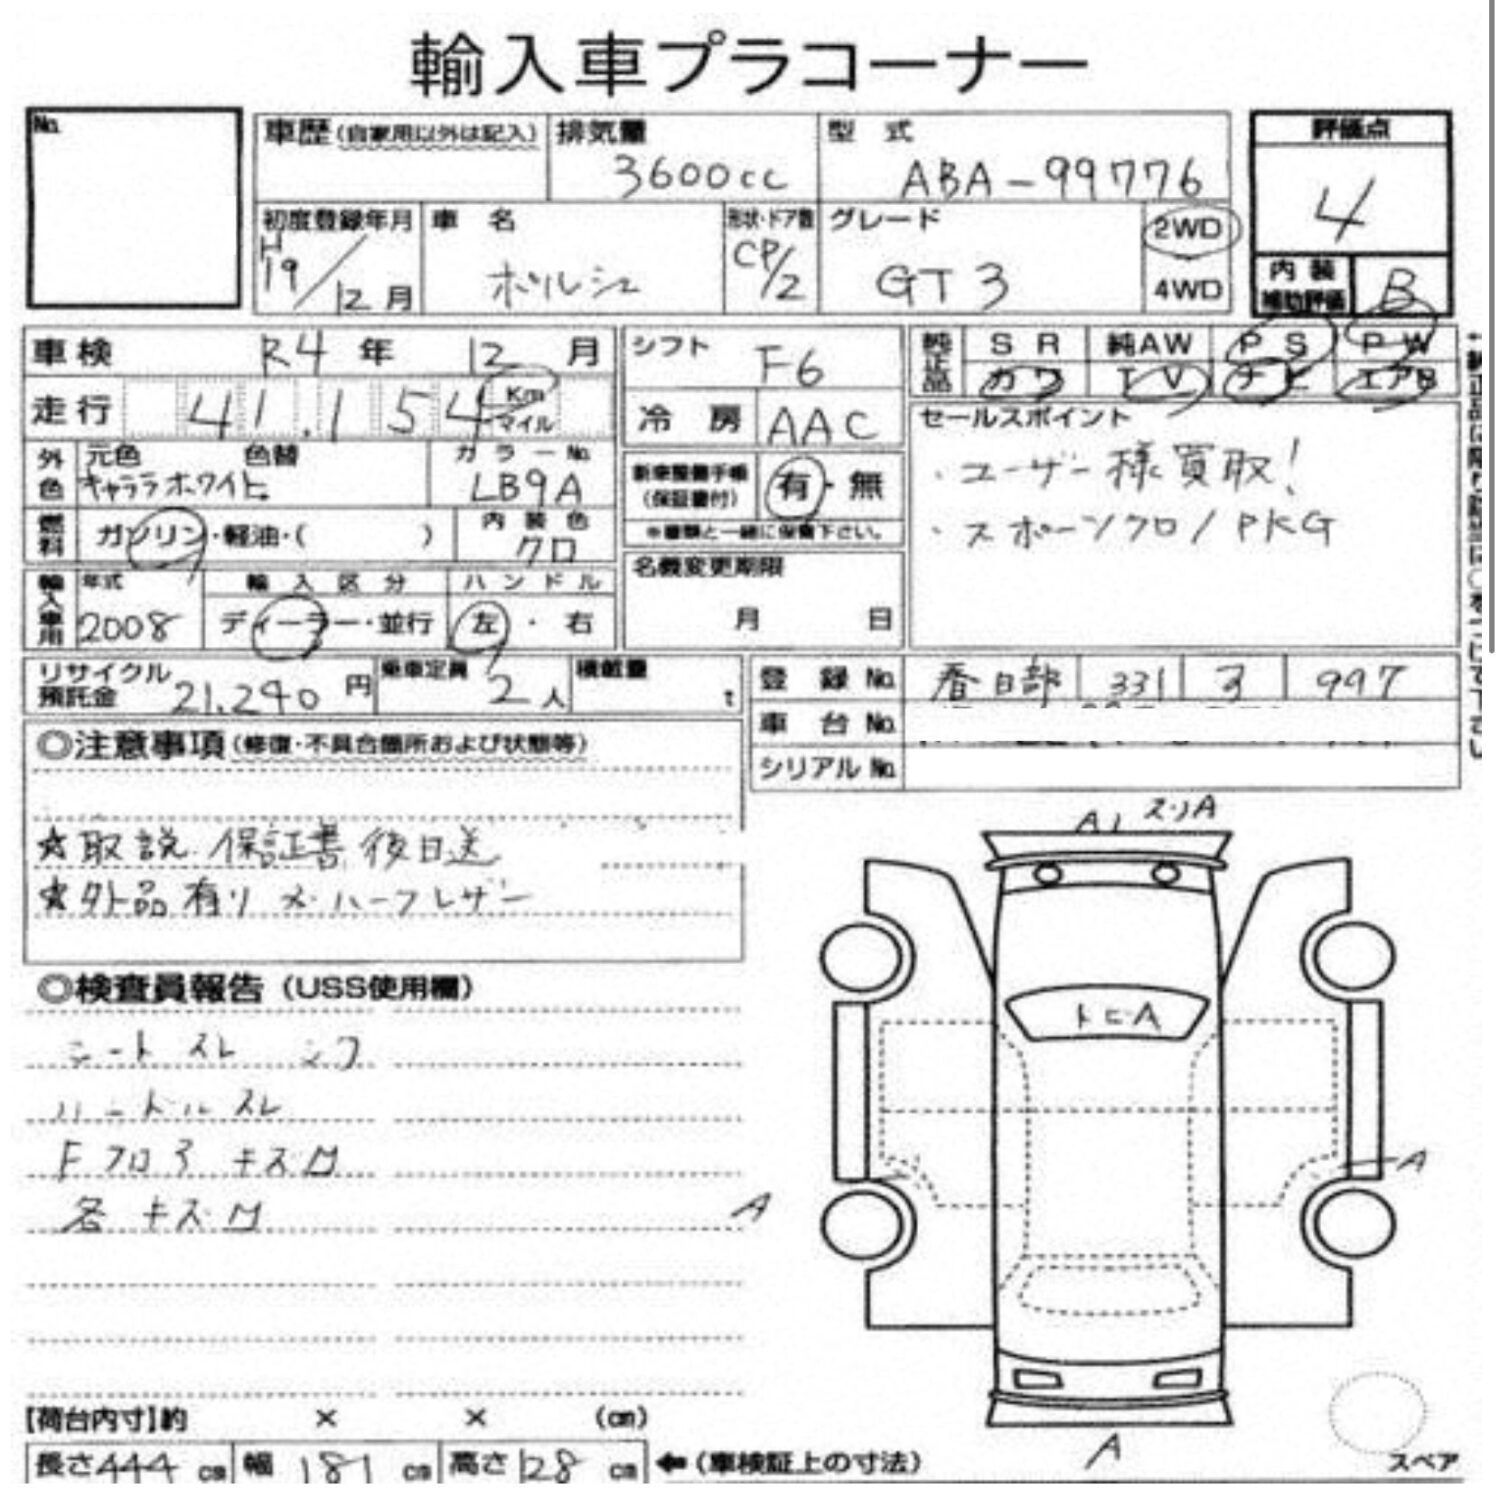 輸入車プラコーナー
No.
車歴(自家用以外は記入) 排気量 型 式 評価点
3600cc ABA-99776 4
初度登録年月 車 名 形状・ドア数 グレード 2WD
H19/12月 ポルシェ CP/2 GT3 4WD
内装補助評価 B
車検 R4年 12月 シフト F6 純正品 SR 純AW PS PW
カワ TV ナビ エアB
走行 41.154 Km マイル 冷 房 AAC セールスポイント
外色 元色 色替 カラーNo.
キャララホワイト LB9A 新車整備手帳(保証書付) 有・無
・ユーザー様買取!
燃料 ガソリン・軽油・( ) 内装色 クロ ※書類と一緒に保管下さい。
・スポーツクロノPKG
輸入車用 年式 輸入区分 ハンドル 名義変更期限
2008 ディーラー・並行 左・右 月 日
リサイクル預託金 21,240円 乗車定員 2人 積載量 t
登録No. 春日部 331 ろ 997
車台No.
シリアルNo.
◎注意事項(修復・不具合箇所および状態等)
★取説 保証書 後日送
★外品有り ※ハーフレザー
◎検査員報告(USS使用欄)
シートスレ シワ
ハンドルスレ
Fフロア キズ凹
各キズ凹
A1 スリA
トビA
A
A
A
【荷台内寸】約 × × (cm)
長さ444cm 幅181cm 高さ128cm ←(車検証上の寸法) スペア